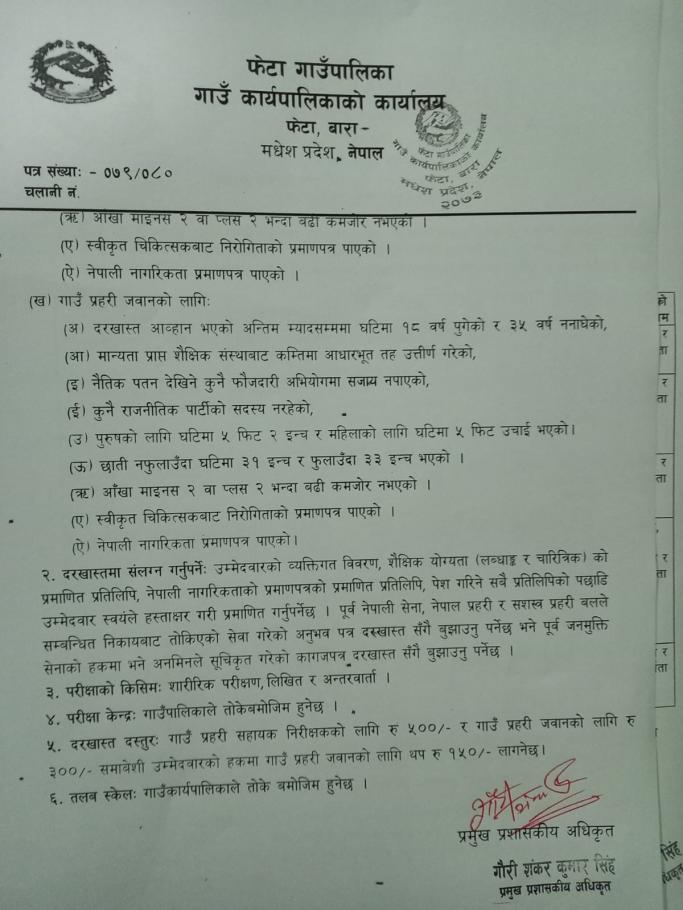 फेटा गाउँपालिका
गाउँ कार्यपालिकाको कार्यालय
फेटा, बारा -
मधेश प्रदेश, नेपाल
फेटा गाउँपालिका
गाउँ कार्यपालिकाको कार्यालय
फेटा, बारा
मधेश प्रदेश, नेपाल
२०७३
पत्र संख्याः - ०७९/०८०
चलानी नं.
(ऋ) आँखा माइनस २ वा प्लस २ भन्दा बढी कमजोर नभएको ।
(ए) स्वीकृत चिकित्सकबाट निरोगिताको प्रमाणपत्र पाएको ।
(ऐ) नेपाली नागरिकता प्रमाणपत्र पाएको ।
(ख) गाउँ प्रहरी जवानको लागिः
(अ) दरखास्त आव्हान भएको अन्तिम म्यादसम्ममा घटिमा १८ वर्ष पुगेको र ३५ वर्ष ननाघेको,
(आ) मान्यता प्राप्त शैक्षिक संस्थाबाट कम्तिमा आधारभूत तह उत्तीर्ण गरेको,
(इ) नैतिक पतन देखिने कुनै फौजदारी अभियोगमा सजाय नपाएको,
(ई) कुनै राजनीतिक पार्टीको सदस्य नरहेको,
(उ) पुरुषको लागि घटिमा ५ फिट २ इन्च र महिलाको लागि घटिमा ५ फिट उचाई भएको।
(ऊ) छाती नफुलाउँदा घटिमा ३१ इन्च र फुलाउँदा ३३ इन्च भएको ।
(ऋ) आँखा माइनस २ वा प्लस २ भन्दा बढी कमजोर नभएको ।
(ए) स्वीकृत चिकित्सकबाट निरोगिताको प्रमाणपत्र पाएको ।
(ऐ) नेपाली नागरिकता प्रमाणपत्र पाएको।
२. दरखास्तमा संलग्न गर्नुपर्नेः उम्मेदवारको व्यक्तिगत विवरण, शैक्षिक योग्यता (लब्धाङ्क र चारित्रिक) को
प्रमाणित प्रतिलिपि, नेपाली नागरिकताको प्रमाणपत्रको प्रमाणित प्रतिलिपि, पेश गरिने सबै प्रतिलिपिको पछाडि
उम्मेदवार स्वयंले हस्ताक्षर गरी प्रमाणित गर्नुपर्नेछ । पूर्व नेपाली सेना, नेपाल प्रहरी र सशस्त्र प्रहरी बलले
सम्बन्धित निकायबाट तोकिएको सेवा गरेको अनुभव पत्र दरखास्त सँगै बुझाउनु पर्नेछ भने पूर्व जनमुक्ति
सेनाको हकमा भने अनमिनले सूचिकृत गरेको कागजपत्र दरखास्त सँगै बुझाउनु पर्नेछ ।
३. परीक्षाको किसिमः शारीरिक परीक्षण, लिखित र अन्तरवार्ता ।
४. परीक्षा केन्द्रः गाउँपालिकाले तोकेबमोजिम हुनेछ ।
५. दरखास्त दस्तुरः गाउँ प्रहरी सहायक निरीक्षकको लागि रु ५००/- र गाउँ प्रहरी जवानको लागि रु
३००/- समाबेशी उम्मेदवारको हकमा गाउँ प्रहरी जवानको लागि थप रु १५०/- लाग्नेछ।
६. तलब स्केलः गाउँकार्यपालिकाले तोके बमोजिम हुनेछ ।
प्रमुख प्रशासकीय अधिकृत
गौरी शंकर कुमार सिंह
प्रमुख प्रशासकीय अधिकृत